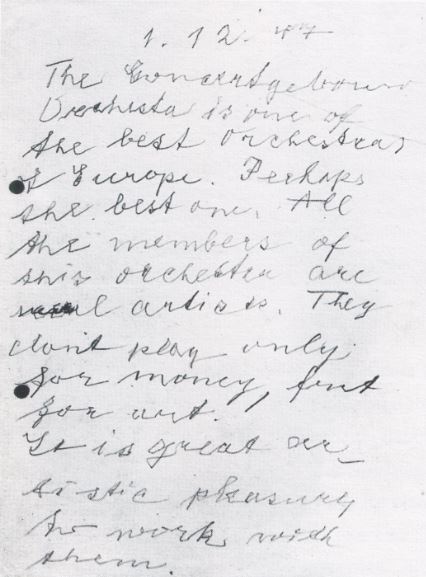 1. 12. 47
The Concertgebouw
Orchesta is one of
the best orchestras
of Europe. Perhaps
the best one. All
the members of
this orchestra are
real artists. They
dont play only
for money, but
for art.
It is great ar_
tistic pleasure
to work with
them.